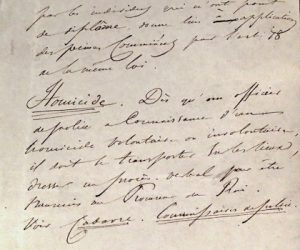 par les individus qui n'ont point
de diplôme, donne lieu à application
des peines Comminées par l'art. 18
de la même loi.
Homicide. Dès qu'un officier
de police a Connaissance d'un
homicide volontaire ou involontaire
il doit se transporter sur les lieux,
dresser un procès-verbal pour être
transmis au Procureur du Roi.
Vois Cadavre. Commissaires de police.